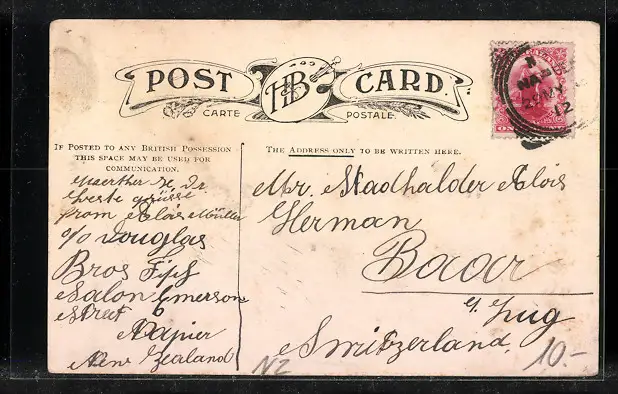 POST CARD.
HB
CARTE POSTALE.
NA
MY
12
ONE PENNY
IF POSTED TO ANY BRITISH POSSESSION
THIS SPACE MAY BE USED FOR
COMMUNICATION.
THE ADDRESS ONLY TO BE WRITTEN HERE.
beste grüsse
from Alois Müller
c/o Douglas
Bros
Salon Emerson
Street
Napier
New Zealand
Mr. Stadhalder Alois
Herman
Baar
Zug
Switzerland.
NZ
10.-